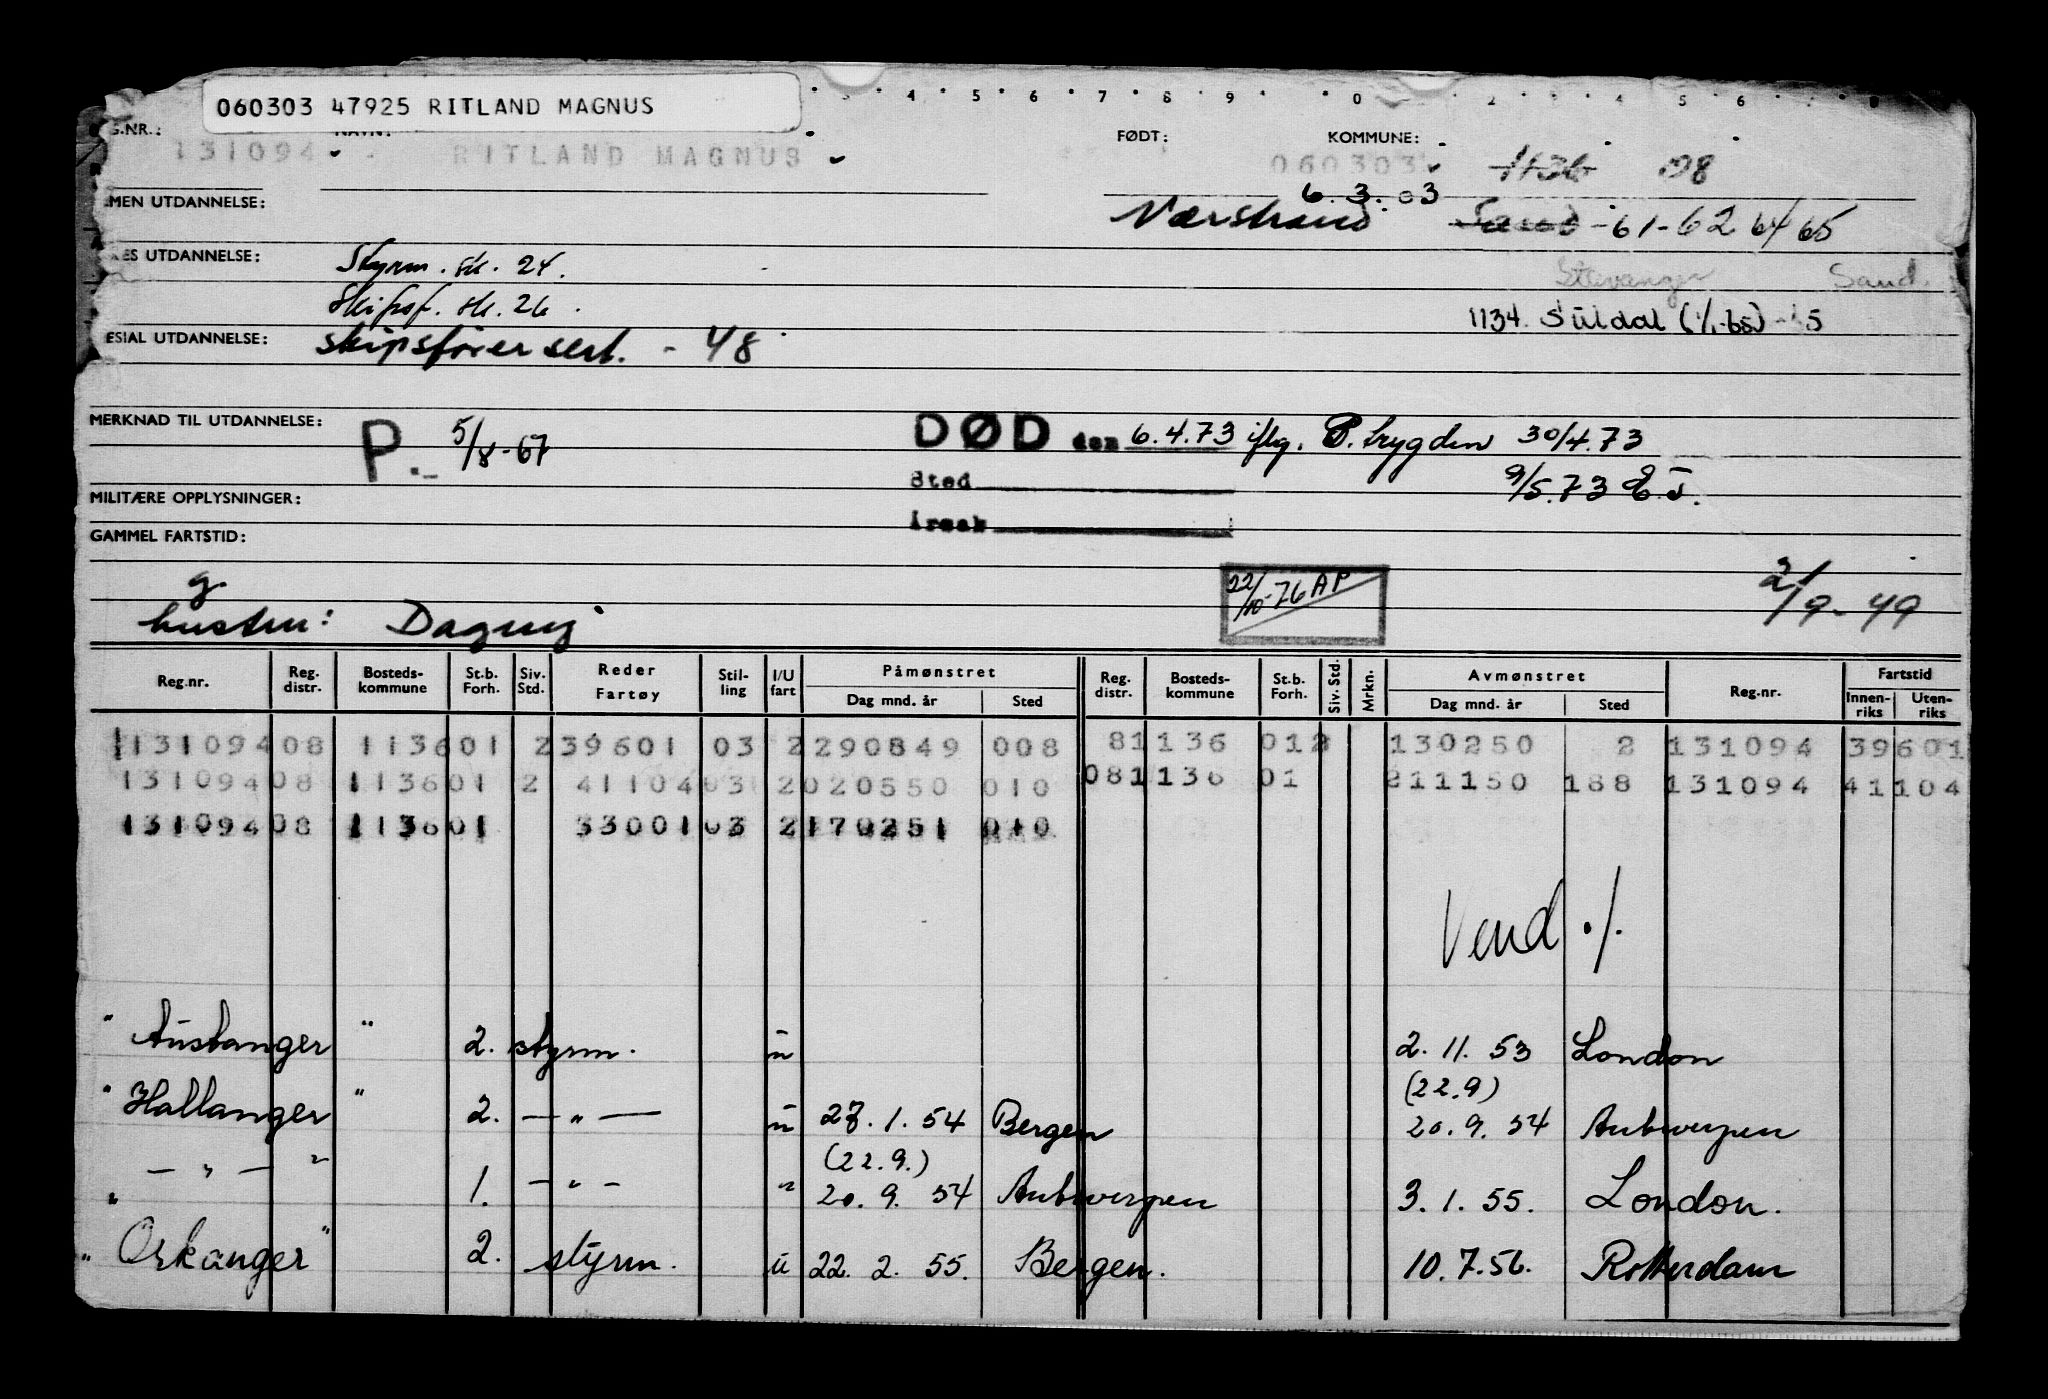 060303 47925 RITLAND MAGNUS
4 5 6 7 8 9 0 2 3 4 5 6
G.NR.: NAVN: FØDT: KOMMUNE:
131094 RITLAND MAGNUS 060303 1136 08
6.3.03
MEN UTDANNELSE: Nærstrand Sand -61-62 64 65
ES UTDANNELSE: Styrm. sk. 24. Stavanger Sand.
Skipsf. sk. 26. 1134. Suldal (1/1-65)
ESIAL UTDANNELSE: skipsførersert. - 48
MERKNAD TIL UTDANNELSE: P. 5/8-67 DØD den 6.4.73 iflg. P. trygden 30/4.73
Sted 9/5.73
MILITÆRE OPPLYSNINGER:
Årsak
GAMMEL FARTSTID:
g. 22/10-76 AP
hustru: Dagny 2/9-49
Reg.nr. Reg. distr. Bosteds-kommune St.b. Forh. Siv. Std. Reder Fartøy Stil-ling I/U fart Påmønstret Dag mnd. år Sted Reg. distr. Bosteds-kommune St.b. Forh. Siv. Std. Mrkn. Avmønstret Dag mnd. år Sted Reg.nr. Fartstid Innen-riks Uten-riks
131094 08 1136 01 2 39601 03 2 290849 008 81 136 01 2 130250 2 131094 39601
131094 08 1136 01 2 41104 03 2 020550 010 081 136 01 211150 188 131094 41104
131094 08 1136 01 33001 03 2 170251 010
Vend ./.
" Austanger " 2. styrm. u 2. 11. 53 London
(22.9)
" Hallanger " 2. — " — u 27. 1. 54 Bergen 20. 9. 54 Antwerpen
(22.9.)
" — " — " 1. — " — " 20. 9. 54 Antwerpen 3. 1. 55. London.
" Orkanger " 2. styrm. u 22. 2. 55. Bergen. 10. 7. 56. Rotterdam